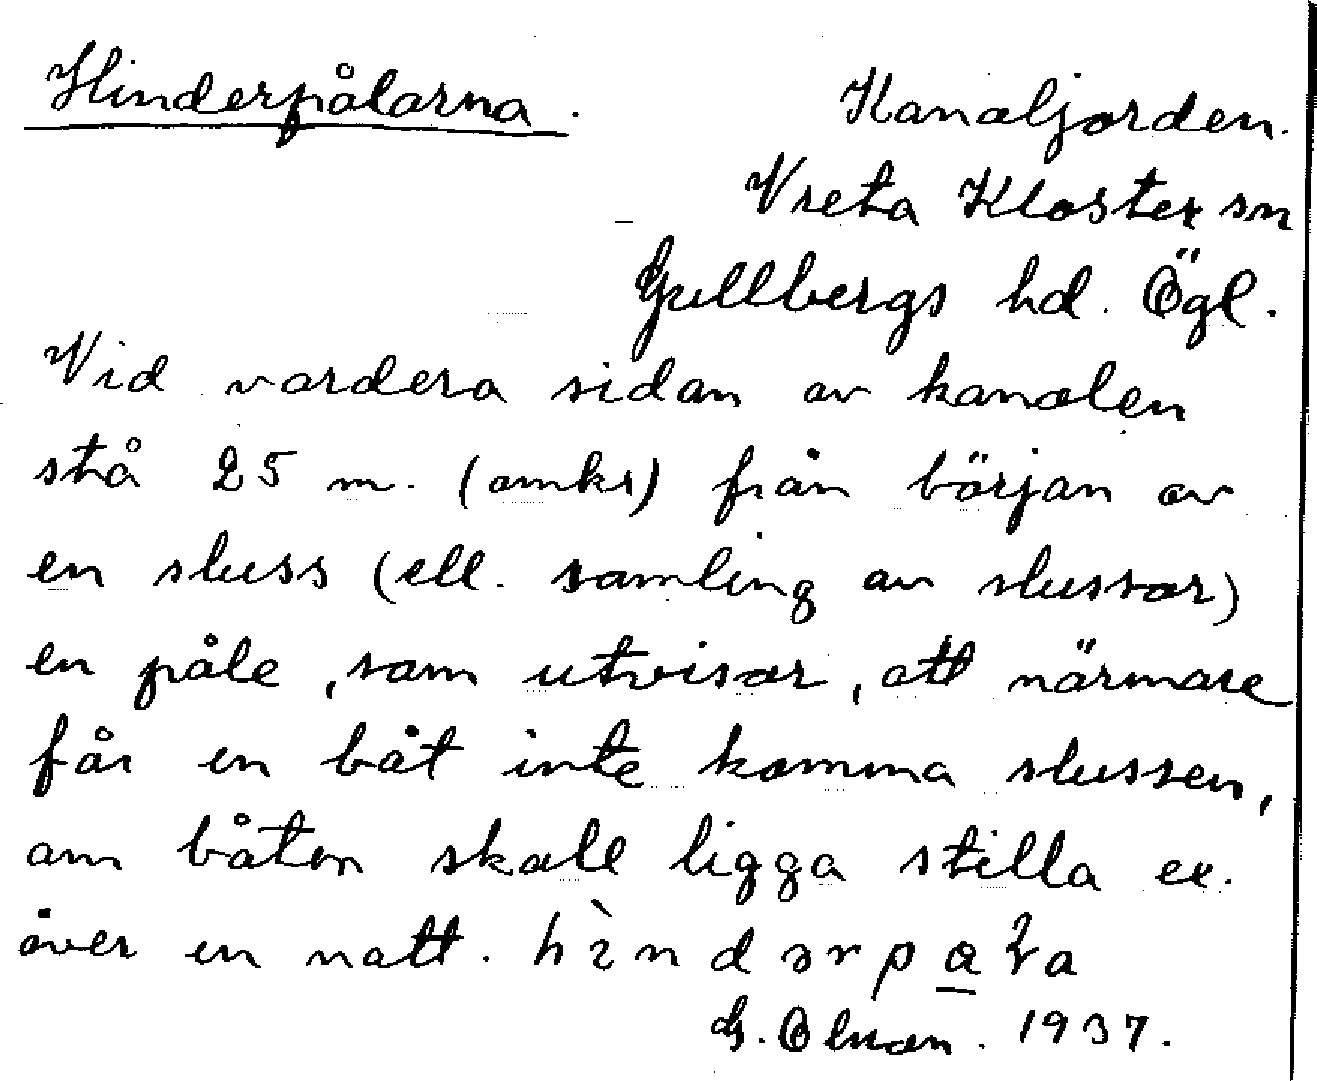 Hinderpålarna. Kanaljorden.
Vreta Kloster sn
Gullbergs hd. Ögl.
Vid vardera sidan av kanalen
stå 25 m. (omkr) från början av
en sluss (ell. samling av slussar)
en påle, som utvisar, att närmare
får en båt inte komma slussen,
om båten skall ligga stilla ex.
över en natt.
G. Olson. 1937.